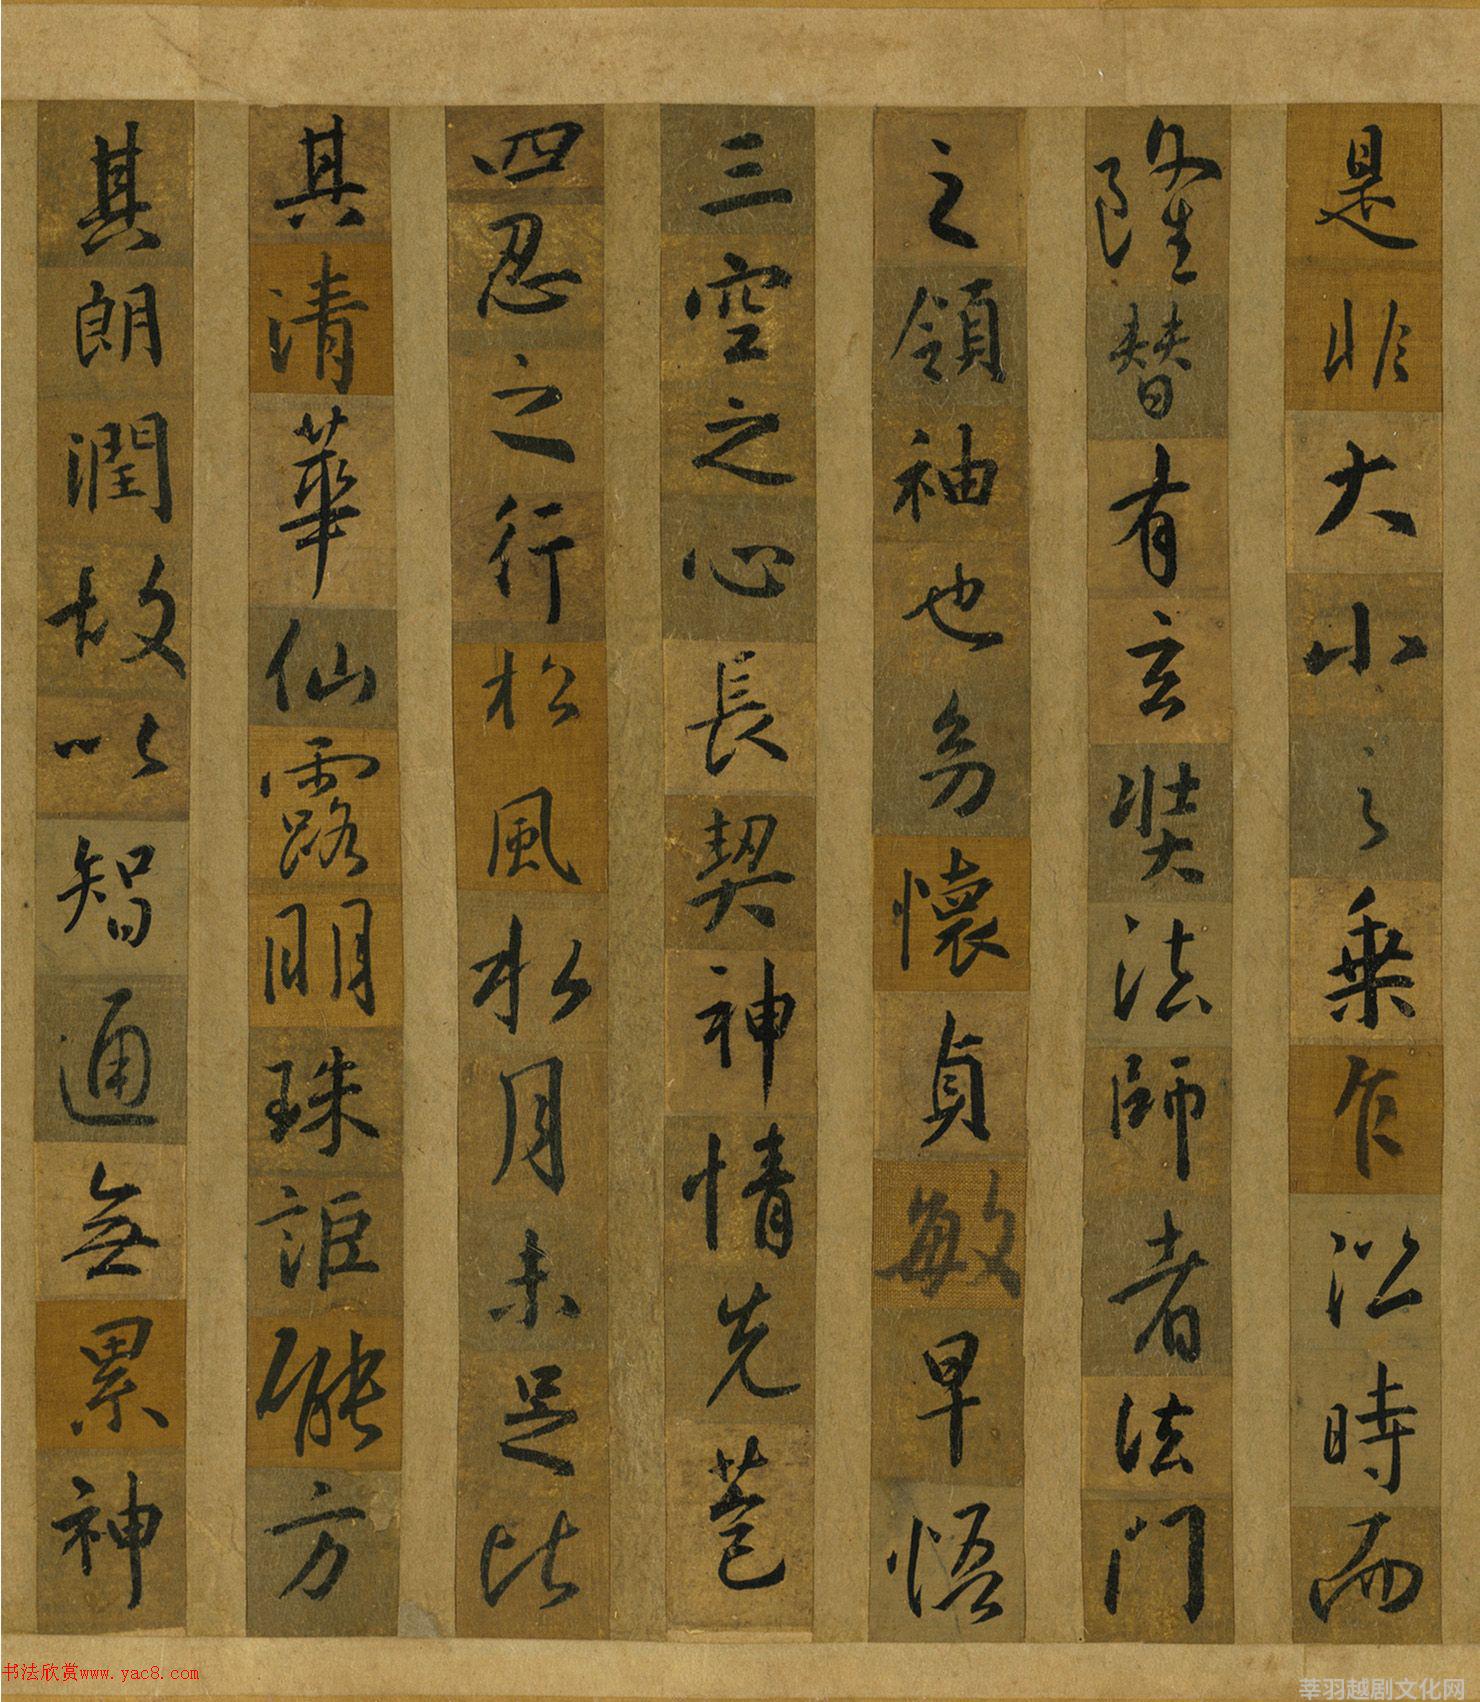 是非大小之乘乍沿時而
隆替有玄奘法師者法門
之領袖也幼懷貞敏早悟
三空之心長契神情先苞
四忍之行松風水月未足比
其清華仙露明珠詎能方
其朗潤故以智通無累神
书法欣赏www.yac8.com
莘羽越剧文化网